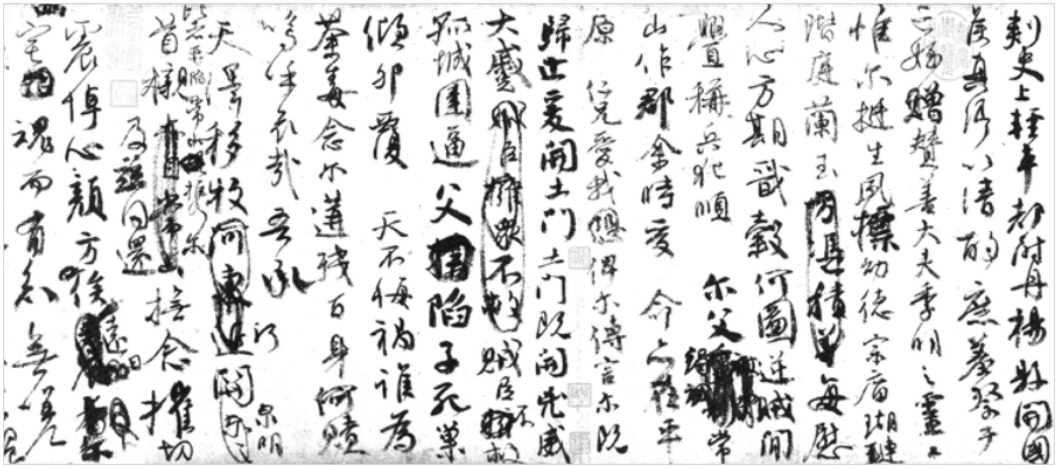 刺史上輕車都尉丹楊縣開國
侯真卿以清酌庶羞祭于
亡姪贈贊善大夫季明之靈曰
惟爾挺生夙標幼德宗廟瑚璉
階庭蘭玉方憑積善每慰
人心方期戩穀何圖逆賊閒
釁稱兵犯順爾父竭誠常
山作郡余時受命亦在平
原仁兄愛我俾爾傳言爾既
歸止爰開土門土門既開兇威
大蹙賊臣擁眾不救賊臣不救
孤城圍逼父擒陷子死巢
傾卵覆天不悔禍誰為
荼毒念爾遘殘百身何贖
嗚呼哀哉吾承
天澤移牧河東近河關泉明
比者再陷常山攜爾
首櫬亦自常山及茲同還撫念摧切
震悼心顏方俟遠日
宅魂而有知無嗟